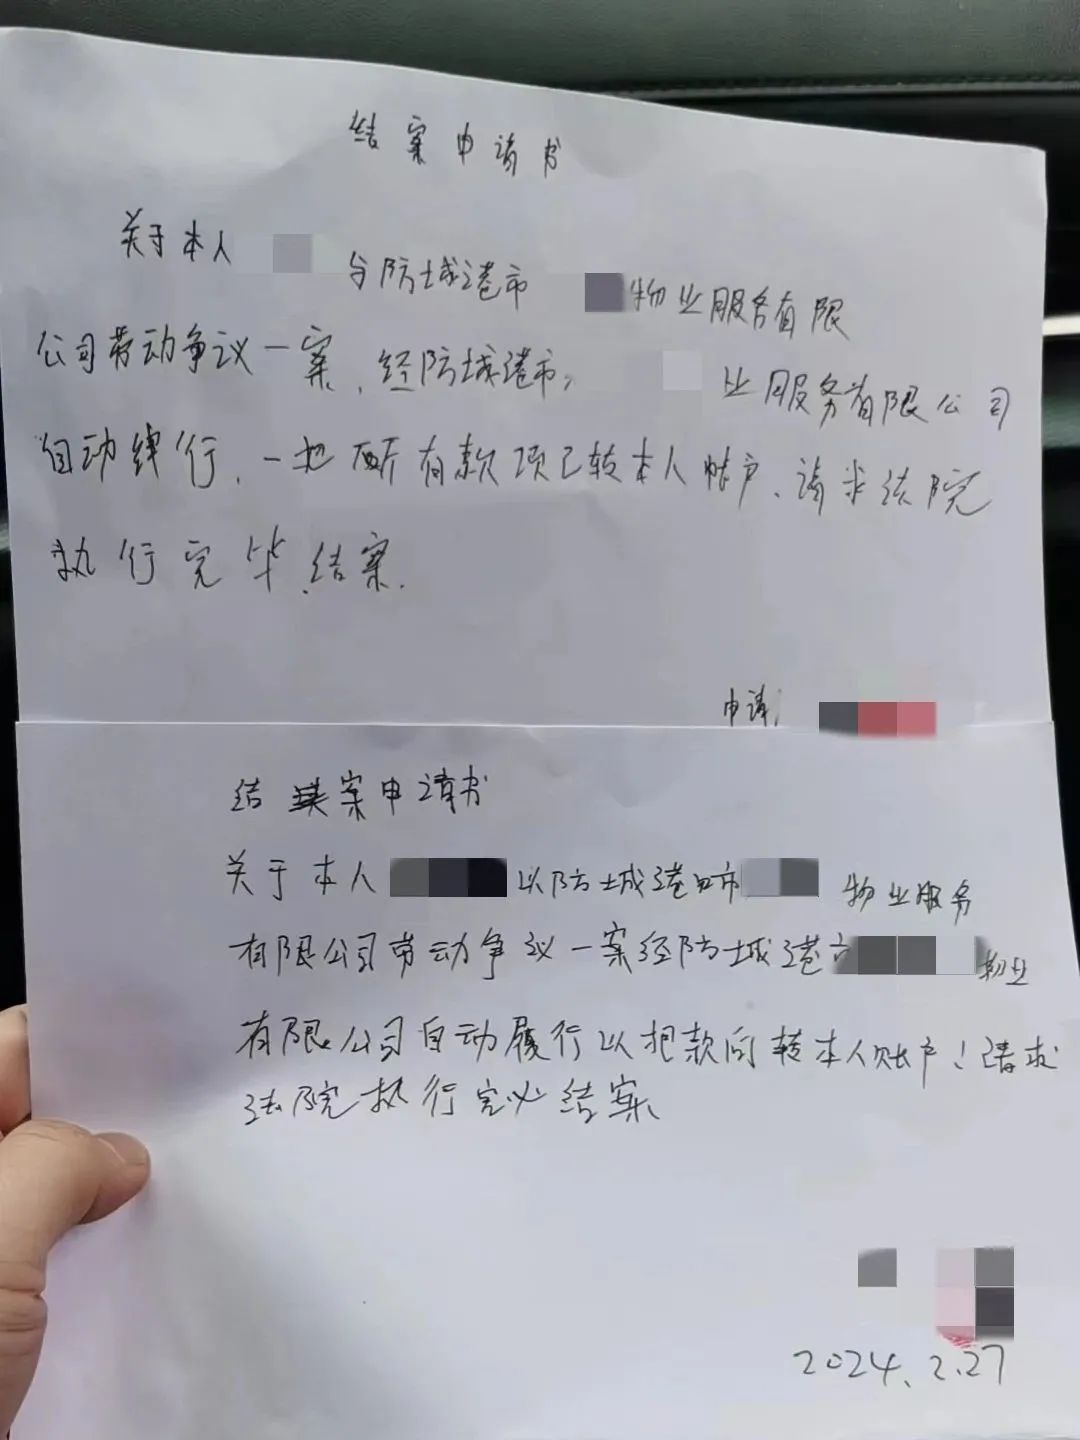 结案申请书
关于本人 与防城港市 物业服务有限
公司劳动争议一案，经防城港市 业服务有限公司
自动 行，一 所有款项已转本人帐户、请求法院
执行完毕结案.
申请
结 案申请书
关于本人 以防城港 市 物业服务
有限公司劳动争议一案经防城港市 物业
有限公司自动履行以把款向转本人账户！请求
法院执行完必结案、
2024.2.27